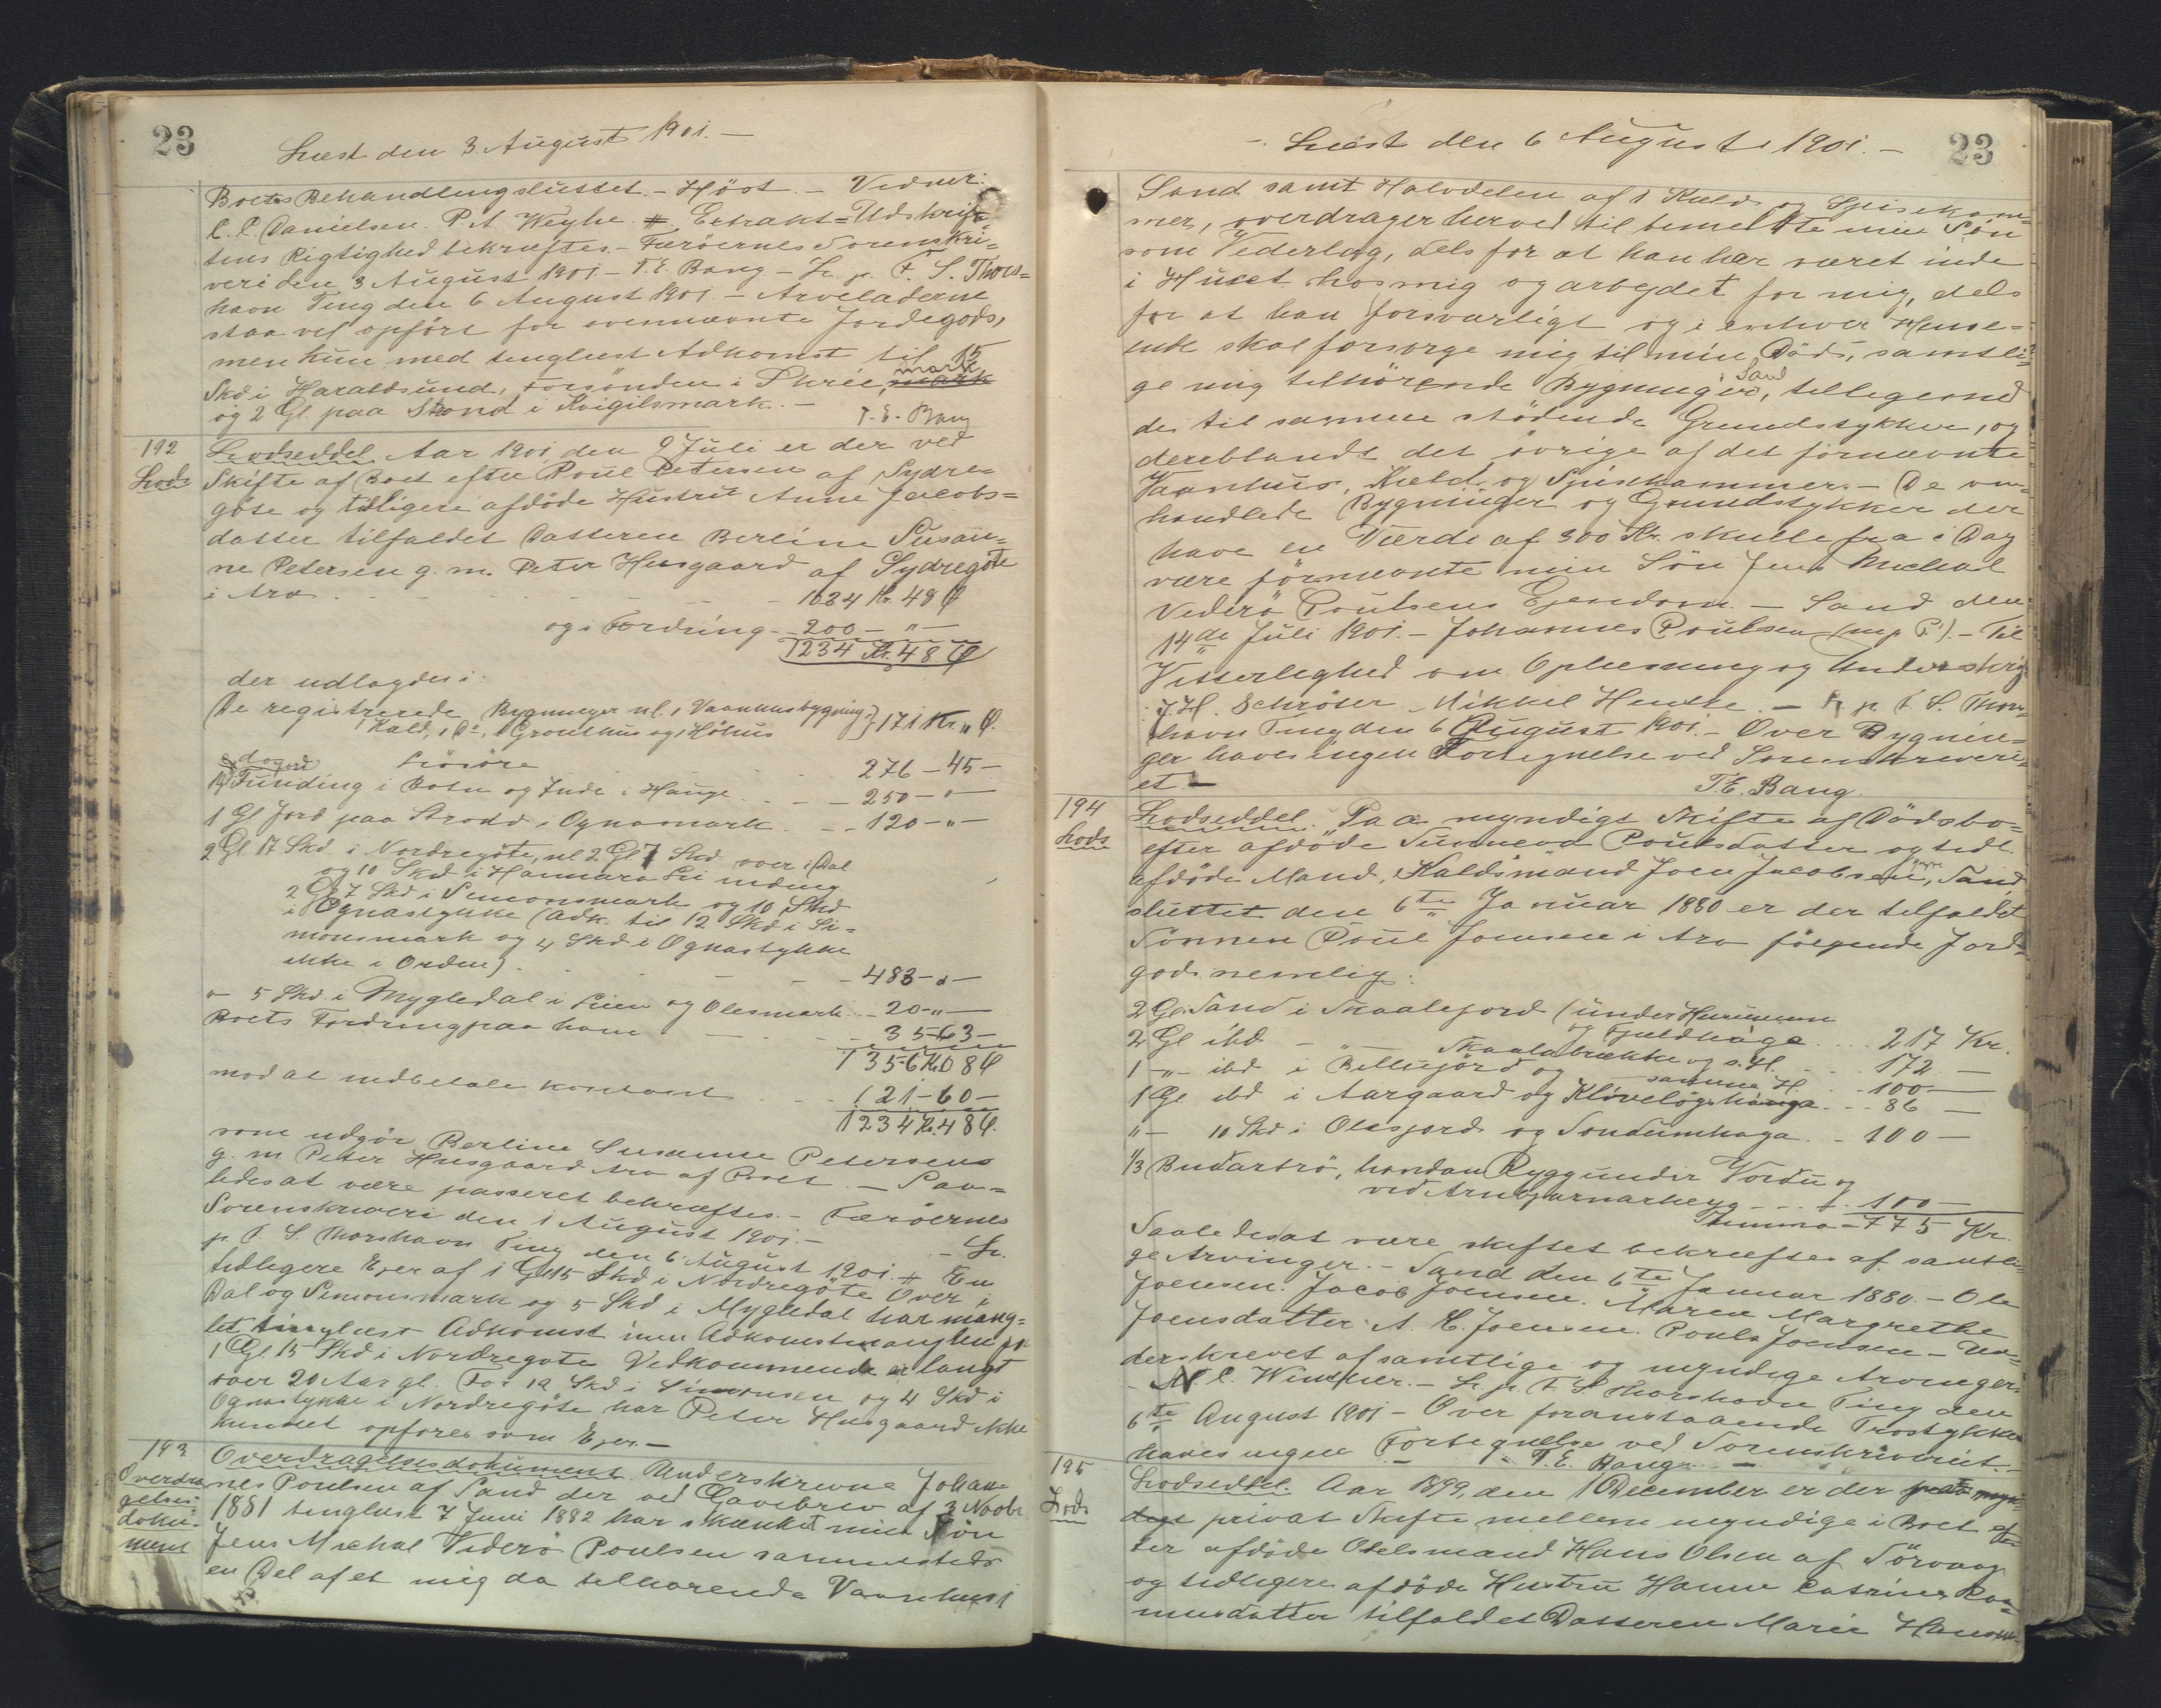 23
Læst den 3 August 1901.—
Boets Behandling sluttet.— Höst.— Vidner:
C. C. Danielsen. P. A. Weyhe. # Extrakt=Udskrif=
tens Rigtighed bekræftes.— Færöernes Sorenskri=
veri den 3 August 1901.— T. E. Bang — Lr. p. F. S. Thors=
havn Ting den 6 August 1901.— Arveladerne
staa vel opfört for ovennævnte Jordegods,
men kun med tinglæst Adkomst til 15
Skd i Haraldsund, Forsönden i mark
og 2 Gl. paa Strond i Kvigilsmark.—
T. E. Bang
192
Lods
Lodseddel. Aar 1901, den 9 Juli er der ved
Skifte af Boet efter Poul Petersen af Sydre=
göte og tidligere afdöde Hustru Anne Jacobs=
datter tilfaldet Datteren Berline Susan=
ne Petersen g. m. Peter Husgaard af Sydregöte
i Arv 1034 Kr. 48 Ø
og i Fordring 200 — " —
1234 Kr. 48 Ø
der udlagdes i:
De registrerede Bygninger nl. 1 Vaanhusbygning,
1 Kald, 1 Do, 1 Grouthus og 1 Höhus } 171 Kr. " Ø.
Lösöre 276 — 45 —
Funding i Botn og Inde i Hauge 250 — " —
1 Gl Jord paa Strodd i Ognamark 120 — " —
2 Gl 17 Skd i Nordregöte, nl 2 Gl 7 Skd over i Dal
og 10 Skd i Hammara Lii
2 Gl 7 Skd i Simonsmark og 10 Skd
i Ognastykke (Adk. til 12 Skd i Si=
monsmark og 4 Skd i Ognastykke
ikke i Orden) 483 — " —
" — 5 Skd i Mygledal i Lien og Olesmark 20 — " —
Boets Fordring paa ham 35 — 63 —
1356 Kr. 08 Ø
mod at indbetale kontant 121 — 60 —
1234 Kr. 48 Ø.
som udgör Berline Susanne Petersens
g. m Peter Husgaard Arv af Boet.— Saa=
ledes at være passeret bekræftes.— Færöernes
Sorenskriveri den 1 August 1901.— — Lr.
p. F. S Thorshavn Ting den 6 August 1901. # En
tidligere Ejer af 1 Gl 15 Skd i Nordregöte Over i
Dal og Simonsmark og 5 Skd i Mygledal har mang=
let tinglæst Adkomst men Adkomstmanglen for
1 Gl. 15 Skd i Nordregöte Vedkommende er langt
over 20 Aar gl. For 12 Skd i Simonsen og 4 Skd i
Ognastykke i Nordregöte har Peter Husgaard ikke
kunnet opföres som Ejer.—
193
Overdra
gelses=
doku=
ment
Overdragelsesdokument. Underskrevne Johan=
nes Poulsen af Sand der ved Gavebrev af 3 Novbr
1881 tinglæst 7 Juni 1882 har skænket min Sön
Jens Michal Viderö Poulsen sammesteds
en Del af et mig da tilhörende Vaanhus i
23
— Læst den 6 August 1901.—
Sand samt Halvdelen af 1 Kjeld og Spisekam=
mer, overdrager herved til bemeldte min Sön
som Vederlag, dels for at han har været inde
i Huset hos mig og arbejdet for mig, dels
for at han forsvarligt og i enhver Hense=
ende skal forsörge mig til min Död, samtli=
ge mig tilhörende Bygninger i Sand, tilligemed
de til samme stödende Grundstykker, og
deriblandt det övrige af det förnævnte
Vaanhus, Kjeld og Spisekammer.— De om=
handlede Bygninger og Grundstykker der
have en Værdi af 300 Kr. skulle fra i Dag
være förnævnte min Sön Jens Michal
Viderö Poulsens Ejendom.— Sand den
14de Juli 1901.— Johannes Poulsen (m. p. P.).— Til
Vitterlighed om Oplæsning og Underskrift
J. H. Schröter. Mikkel Hentze.— Lr p. F. S. Thors=
havn Ting den 6 August 1901.— Over Bygnin=
ger haves ingen Fortegnelse ved Sorenskriveri=
et.—
T. E. Bang.
194
Lods
Lodseddel. Paa myndigt Skifte af Dödsbo=
efter afdöde Sunneva Poulsdatter og tidl.
afdöde Mand, Kaldsmand Joen Jacobsen, Sand
sluttet den 6te Januar 1880 er der tilfaldet
Sönnen Poul Joensen i Arv fölgende Jord=
gods nemlig:
2 Gl. Sand i Skaalejord (under
2 Gl ibd — " — 217 Kr.
1 — " — ibd i og samme H. 172 —
100 —
1 Gl. ibd i Aargaard og 86 —
" — 10 Skd i Olesjord og Sondumhaga 100 —
1/3 Budartrö, handan Ryggundir Vordu og
ved 100 —
Summa — 775 Kr.
Saaledes at være skiftet bekræftes af samtli=
ge Arvinger.— Sand den 6te Januar 1880.— Ole
Joensen. Jacob Joensen. Maren Margrethe
Joensdatter. A. E. Joensen. Poul Joensen — Un=
derskrevet af samtlige og myndige Arvinger.
— N. C. Winther.— Lr. p. F. S Thorshavn Ting den
6te August 1901 — Over foranstaaende Tröstykke
haves ingen Fortegnelse ved Sorenskriveriet.—
T. E. Bang. —
195
Lods
Lodseddel. Aar 1899, den 1 December er der
privat Skifte mellem myndige i Boet ef=
ter afdöde Odelsmand Hans Olsen af Sörvaag
og tidligere afdöde Hustru Hanne Catrine Ras=
musdatter tilfaldet Datteren Marie